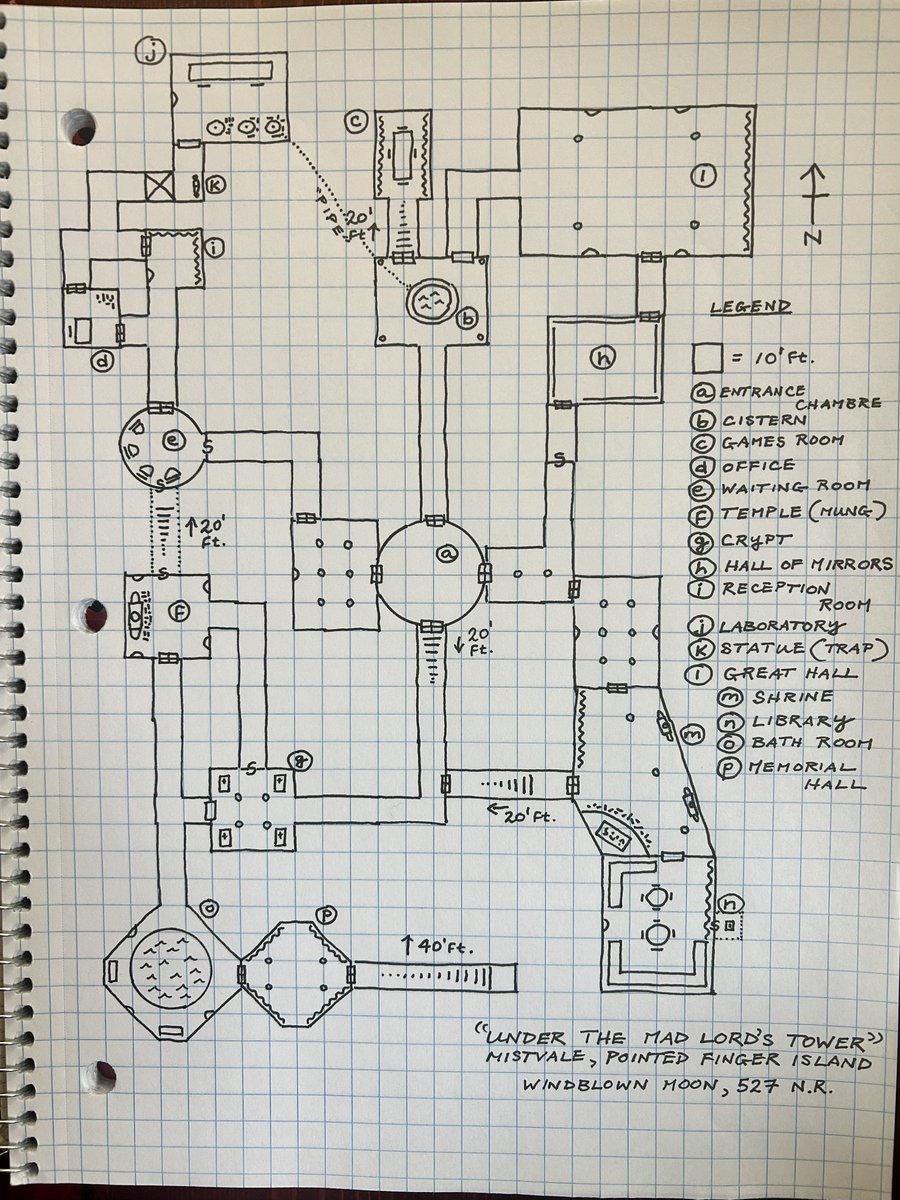 j
c
k
l
"PIPE"
20'
Ft.
i
N
b
LEGEND
h
= 10'Ft.
d
a ENTRANCE
CHAMBRE
b CISTERN
e
S
c GAMES ROOM
S
d OFFICE
S
e WAITING ROOM
20'
Ft.
F TEMPLE (MUNG)
g CRYPT
a
h HALL OF MIRRORS
S
i RECEPTION
ROOM
F
j LABORATORY
20'
Ft.
k STATUE (TRAP)
l GREAT HALL
m SHRINE
n LIBRARY
m
o BATH ROOM
g
p MEMORIAL
HALL
S
20'Ft.
SUN
n
S
o
p
40'Ft.
"UNDER THE MAD LORD'S TOWER"
MISTVALE, POINTED FINGER ISLAND
WINDBLOWN MOON, 527 N.R.